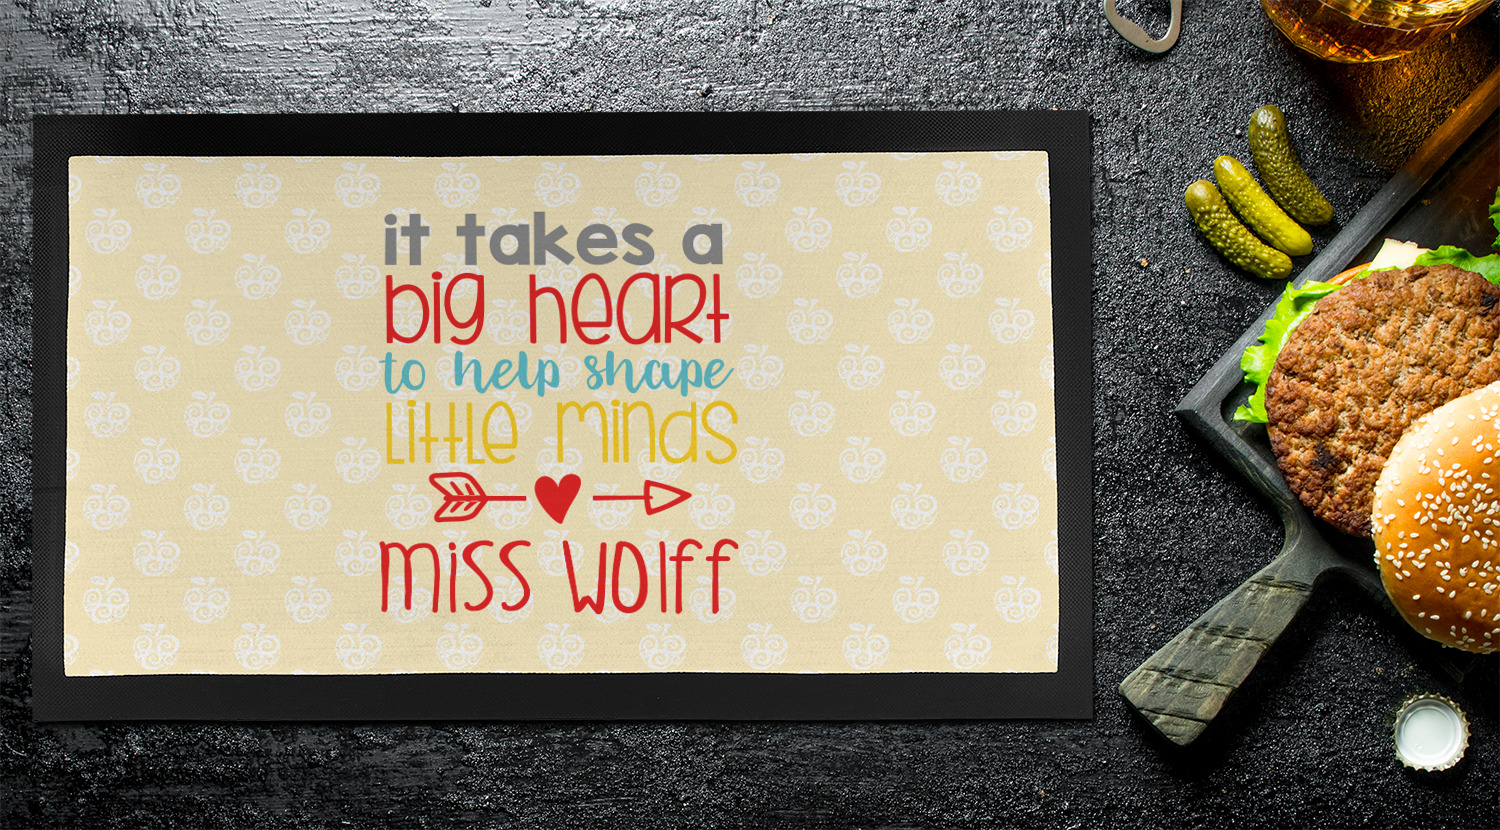 it takes a
big heart
to help shape
little minds
miss wolff